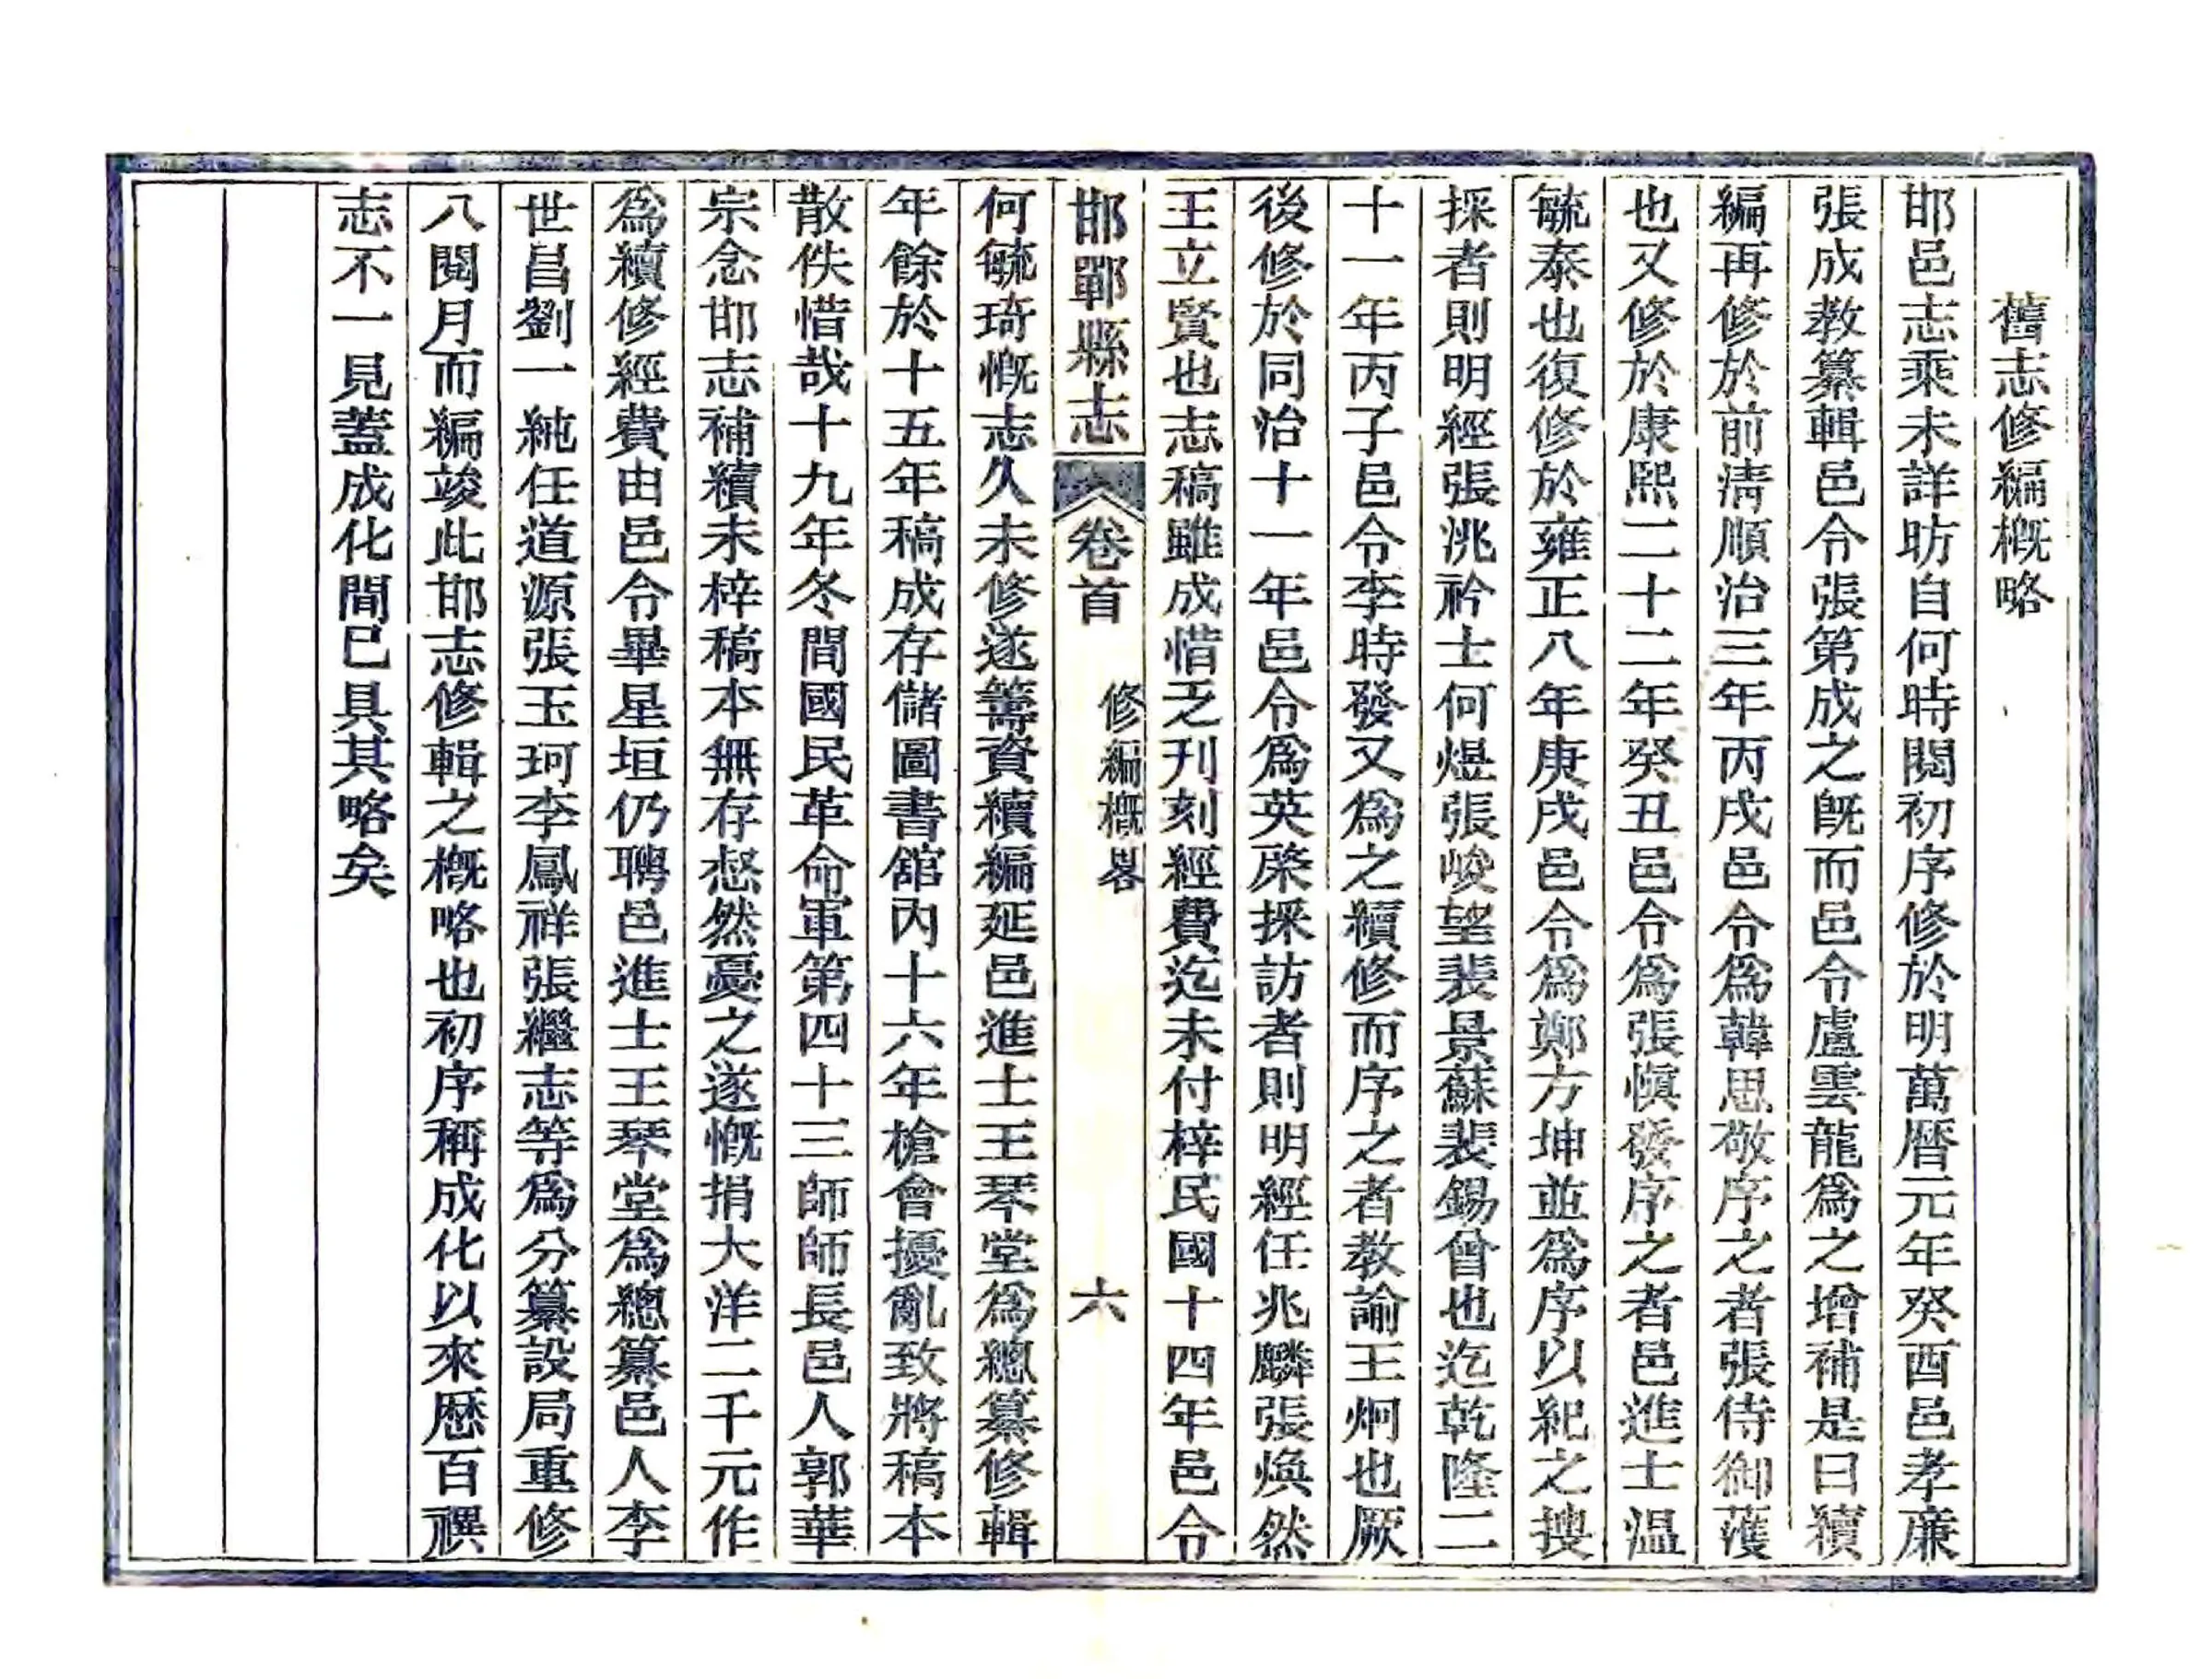 舊志修編概略
邯邑志乘未詳昉自何時閱初序修於明萬曆元年癸酉邑孝廉
張成教纂輯邑令張第成之旣而邑令盧雲龍爲之增補是曰續
編再修於前淸順治三年丙戌邑令爲韓思敬序之者張侍御蒦
也又修於康熙二十二年癸丑邑令爲張愼發序之者邑進士温
毓泰也復修於雍正八年庚戌邑令爲鄭方坤並爲序以紀之搜
採者則明經張洮衿士何煜張峻望裴景蘇裴錫曾也迄乾隆二
十一年丙子邑令李時發又爲之續修而序之者教諭王炯也厥
後修於同治十一年邑令爲英棨採訪者則明經任兆麟張煥然
王立賢也志稿雖成惜乏刊刻經費迄未付梓民國十四年邑令
邯鄲縣志 卷首 修編概畧 六
何毓琦慨志久未修遂籌資續編延邑進士王琴堂爲總纂修輯
年餘於十五年稿成存儲圖書舘內十六年槍會擾亂致將稿本
散佚惜哉十九年冬間國民革命軍第四十三師師長邑人郭華
宗念邯志補續未梓稿本無存惄然憂之遂慨捐大洋二千元作
爲續修經費由邑令畢星垣仍聘邑進士王琴堂爲總纂邑人李
世昌劉一純任道源張玉珂李鳳祥張繼志等爲分纂設局重修
八閱月而編竣此邯志修輯之概略也初序稱成化以來歷百禩
志不一見蓋成化間已具其略矣